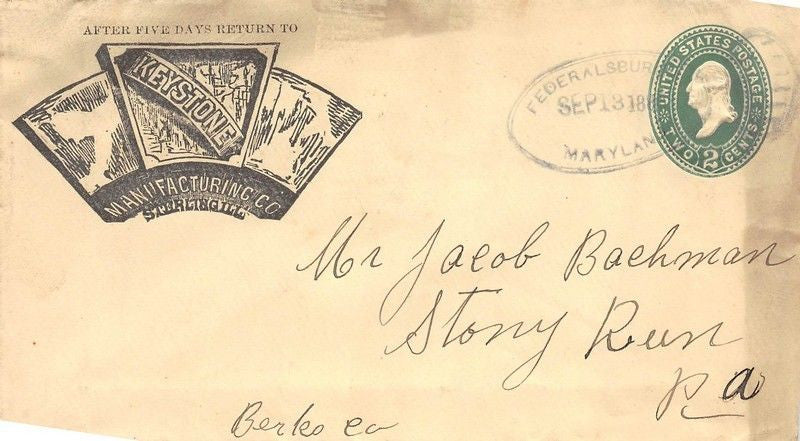 AFTER FIVE DAYS RETURN TO
KEYSTONE
MANUFACTURING CO
STERLING ILL
FEDERALSBUR
SEP 13 188
MARYLAN
UNITED STATES POSTAGE
TWO 2 CENTS
Mr Jacob Bachman
Stony Run
Pa
Berks Co